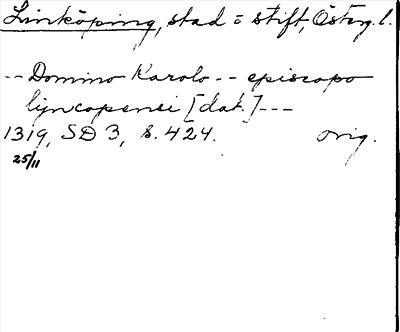 Linköping, stad = stift, Österg. l.
-- Domino Karolo -- episcopo
lyncopensi [dat.] ---
1319, SD 3, s. 424. orig.
25/11